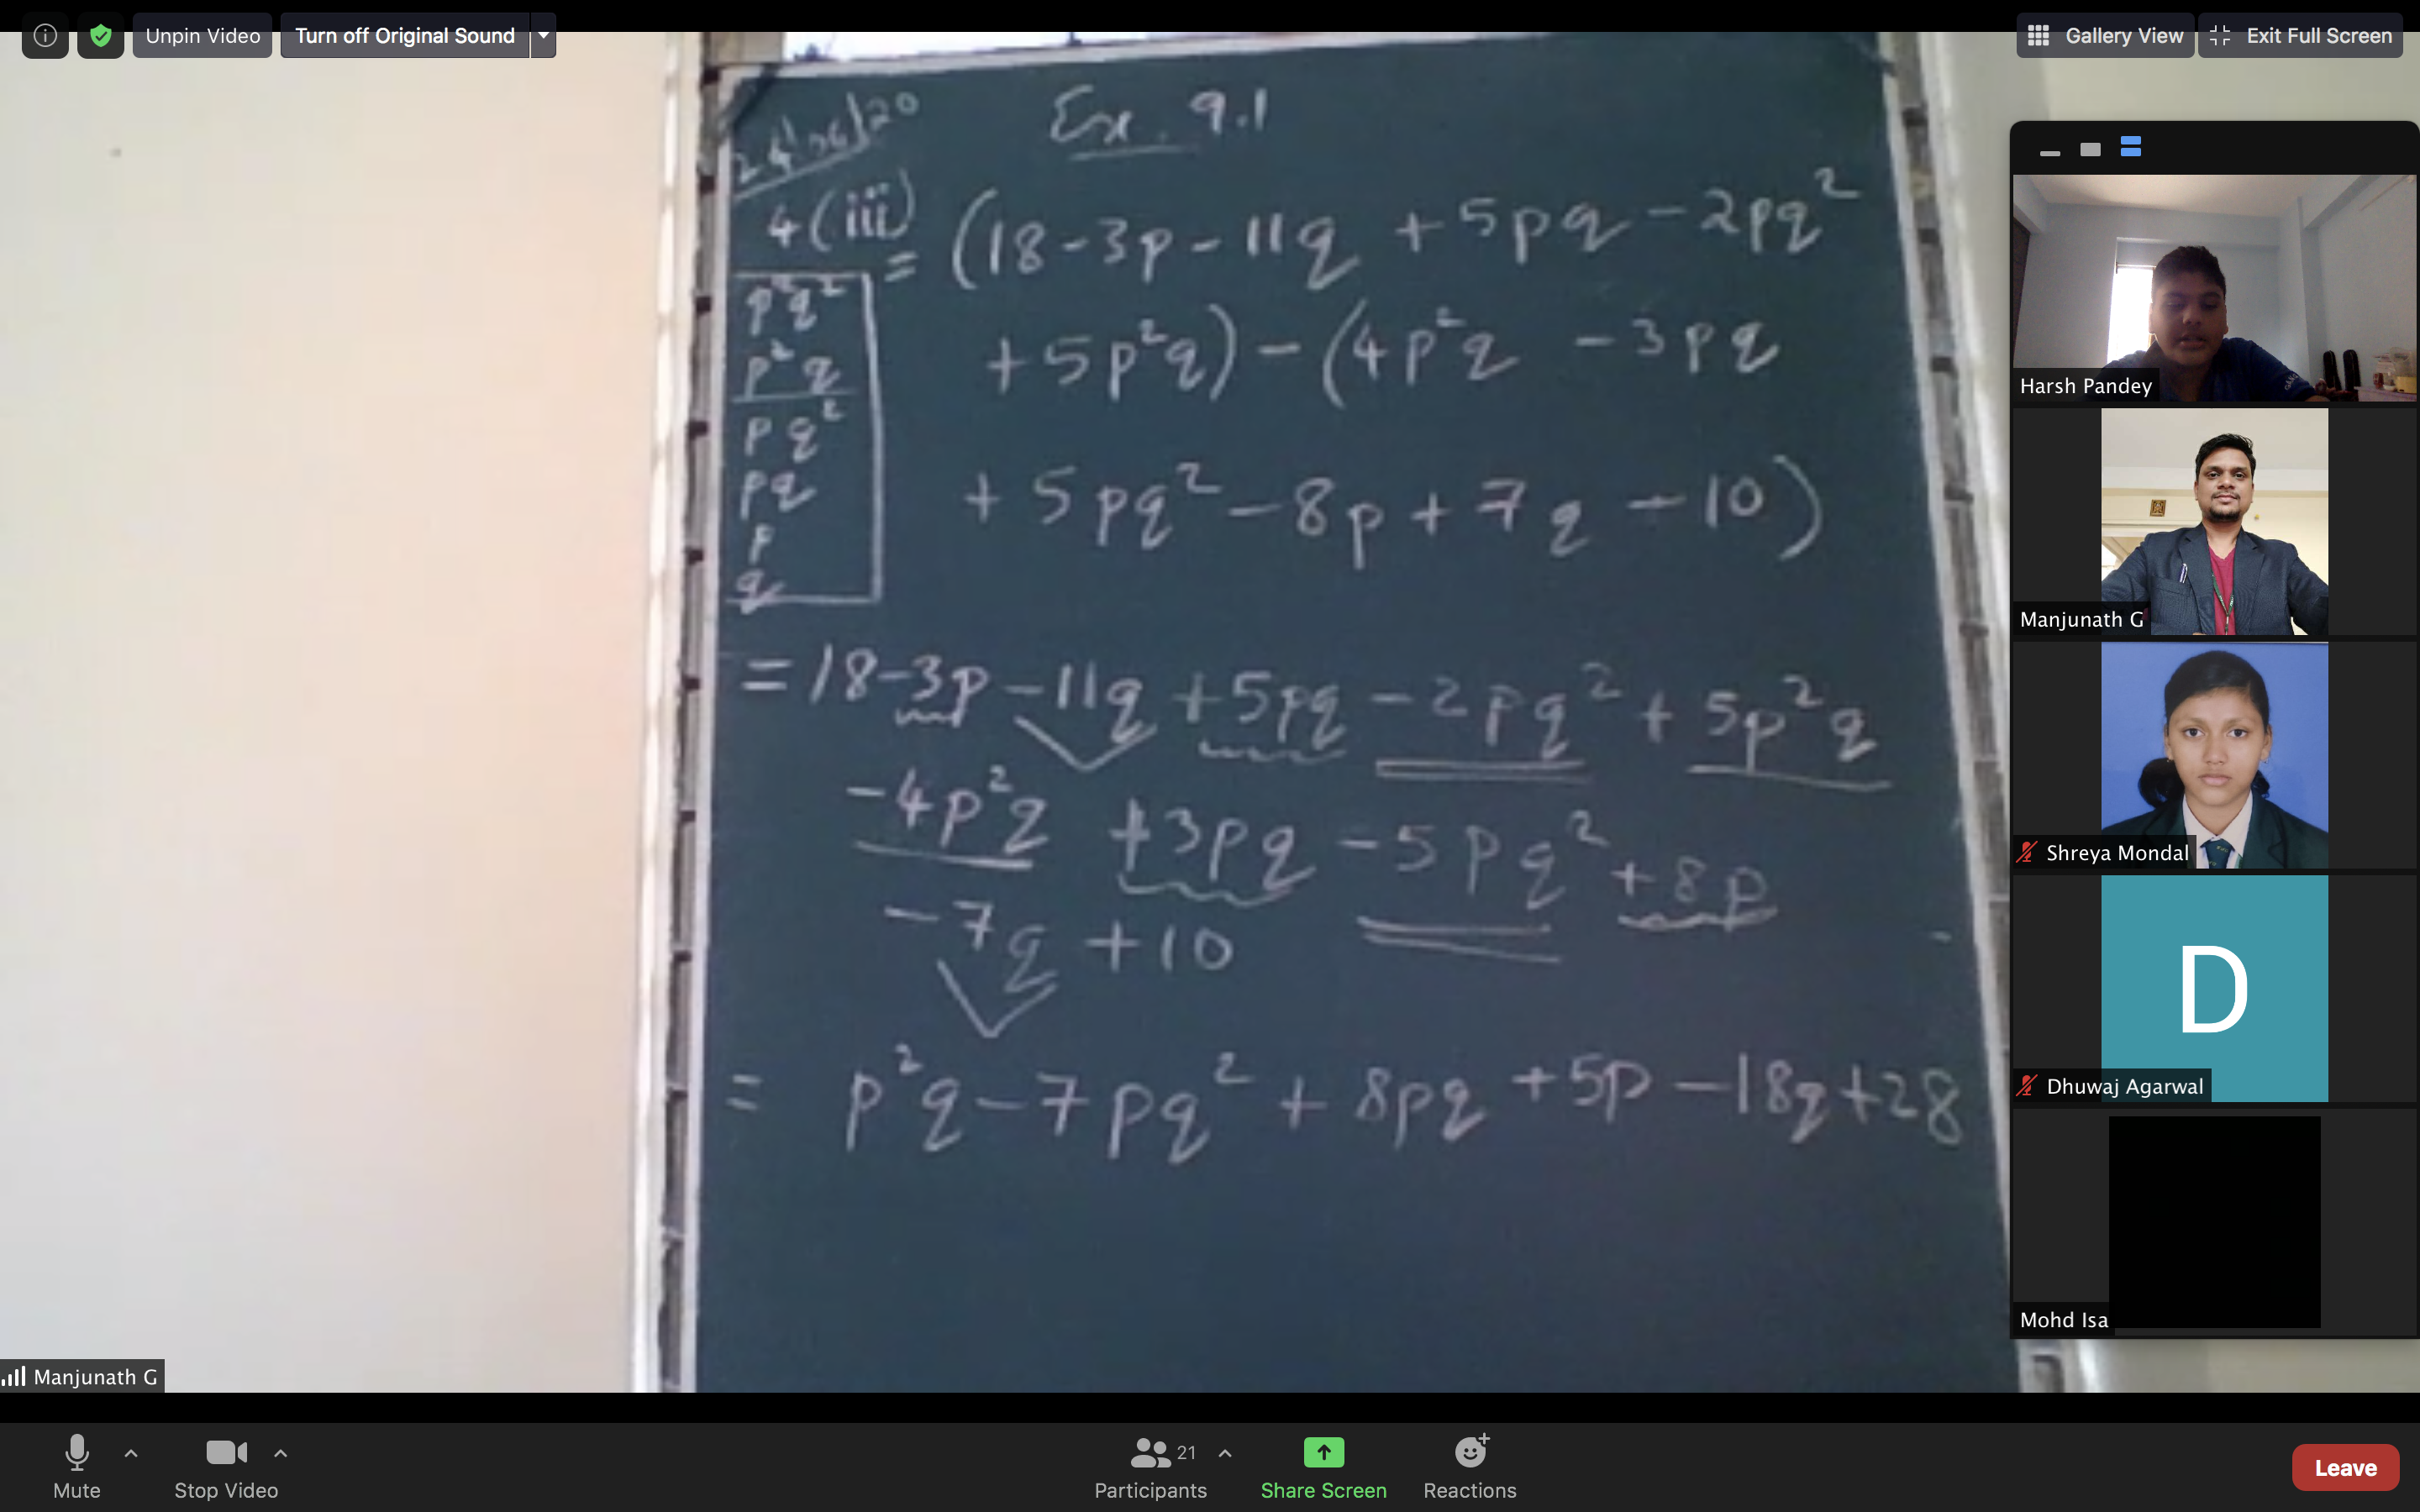 Unpin Video
Turn off Original Sound
Gallery View
Exit Full Screen
24/06/20
Ex. 9.1
4(iii) = (18-3p-11q +5pq-2pq²
+5p²q)-(4p²q -3pq
+5pq²-8p+7q-10)
p²q²
p²q
pq²
pq
p
q
=18-3p-11q+5pq-2pq²+5p²q
-4p²q +3pq-5pq²+8p
-7q+10
= p²q-7pq²+8pq+5p-18q+28
Harsh Pandey
Manjunath G
Shreya Mondal
D
Dhuwaj Agarwal
Mohd Isa
Manjunath G
Mute
Stop Video
21
Participants
Share Screen
Reactions
Leave